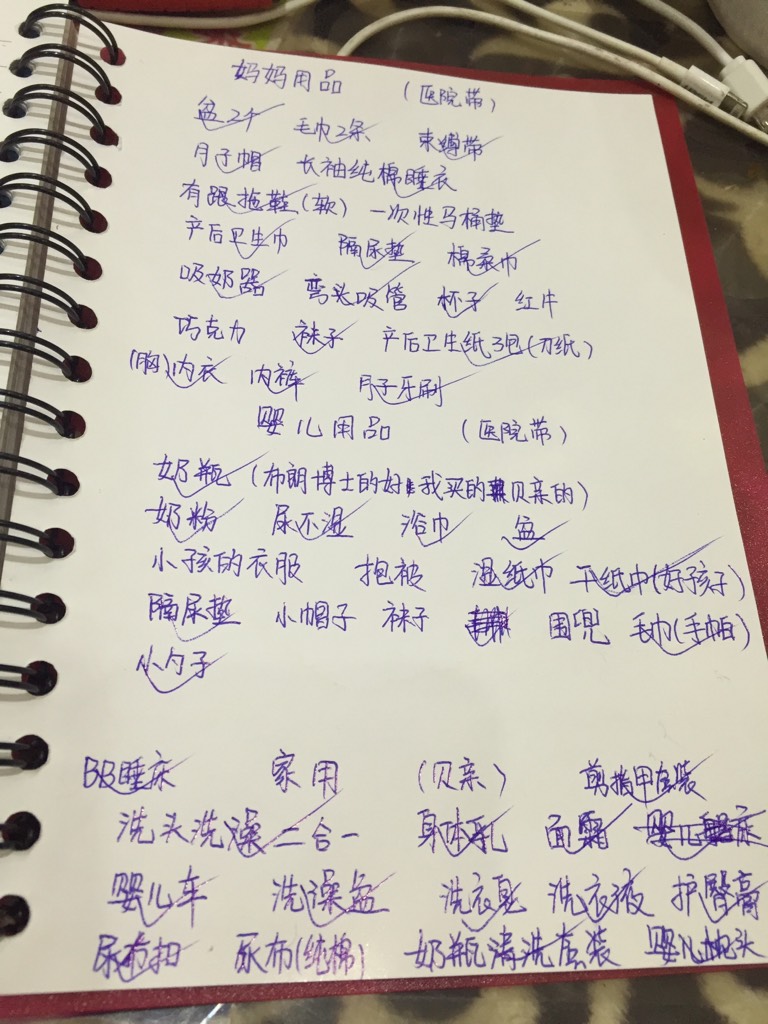 妈妈用品 (医院带)
盆2个 毛巾2条 束缚带
月子帽 长袖纯棉睡衣
有跟拖鞋(软) 一次性马桶垫
产后卫生巾 隔尿垫 棉柔巾
吸奶器 弯头吸管 杯子 红牛
巧克力 袜子 产后卫生纸3包(刀纸)
(胸)内衣 内裤 月子牙刷
婴儿用品 (医院带)
奶瓶 (布朗博士的好 我买的 贝亲的)
奶粉 尿不湿 浴巾 盆
小孩的衣服 抱被 湿纸巾 干纸巾(好孩子)
隔尿垫 小帽子 袜子 围兜 毛巾(手帕)
小勺子
BB睡床 家用 (贝亲) 剪指甲套装
洗头洗澡二合一 身体乳 面霜
婴儿车 洗澡盆 洗衣皂 洗衣液 护臀膏
尿布扣 尿布(纯棉) 奶瓶清洗套装 婴儿枕头